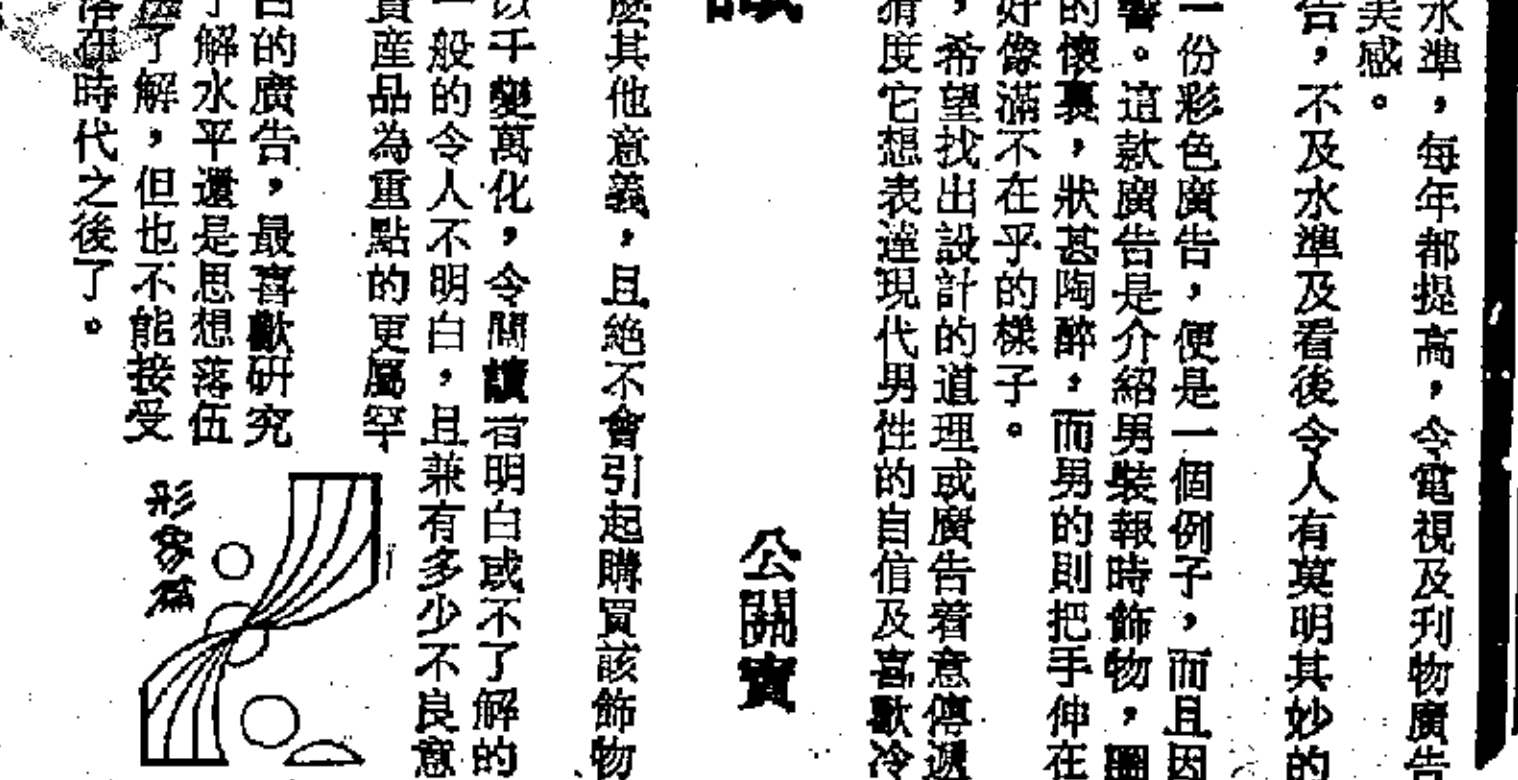 水準，每年都提高，令電視及刋物廣告
美感。
告，不及水準及看後令人有莫明其妙的
一份彩色廣告，便是一個例子，而且因
響。這款廣告是介紹男裝報時飾物，圖
的懷裏，狀甚陶醉，而男的則把手伸在
好像滿不在乎的樣子。
，希望找出設計的道理或廣告着意傳遞
猜度它想表達現代男性的自信及喜歡冷
公關寶
麼其他意義，且絕不會引起購買該飾物
以千變萬化，令閱讀者明白或不了解的
一般的令人不明白，且兼有多少不良意
賣產品為重點的更屬罕
白的廣告，最喜歡研究
了解水平還是思想落伍
了解，但也不能接受
落在時代之後了。
形象篇